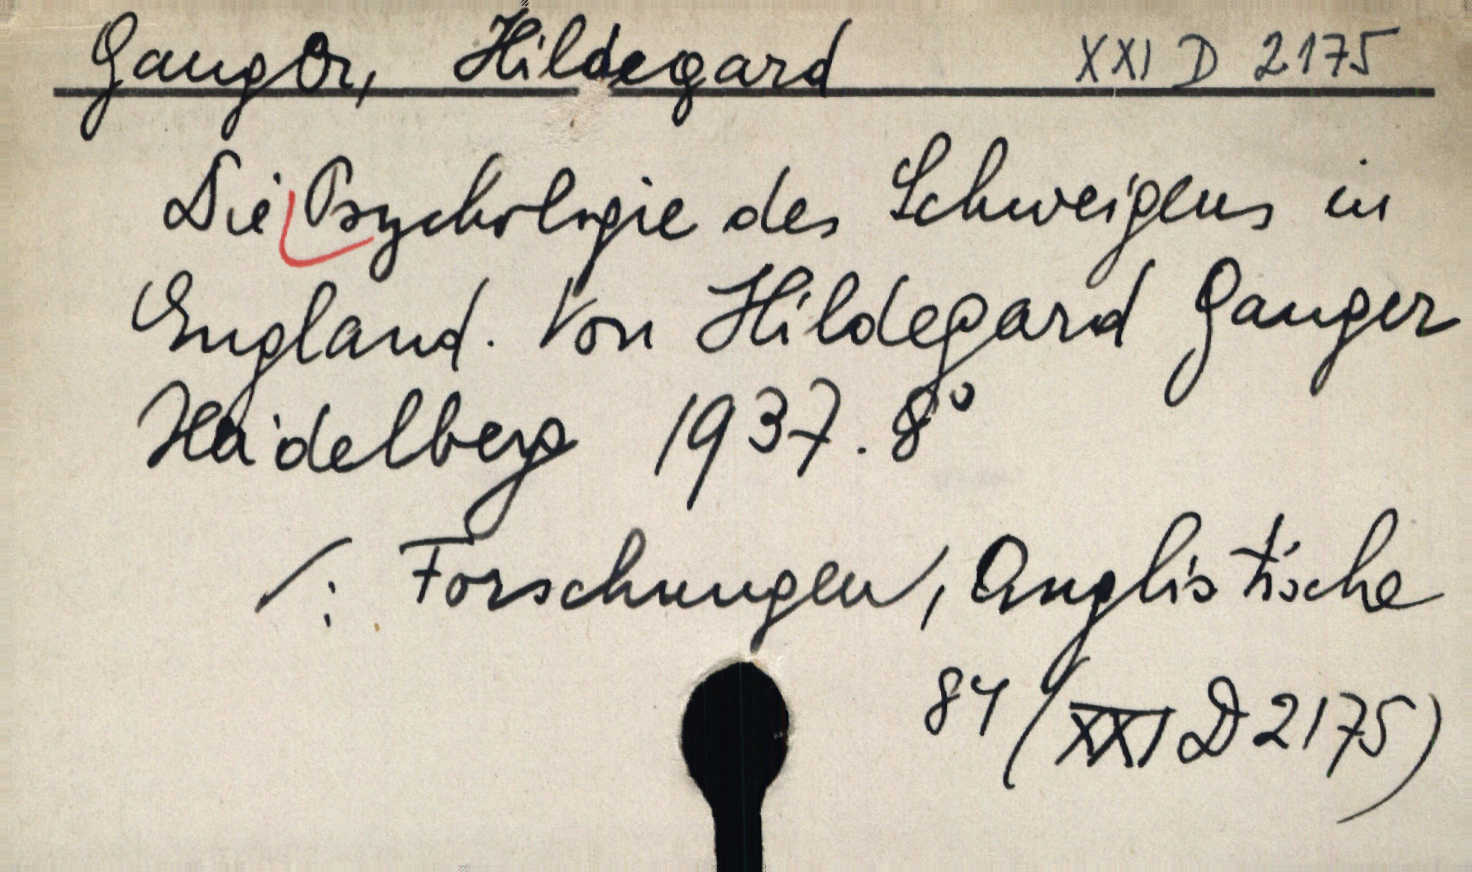 Ganger, Hildegard XXI D 2175
Die Psychologie des Schweigens in
England. Von Hildegard Ganger
Heidelberg 1937. 8°
/: Forschungen, Anglistische
84 (XXI D 2175)